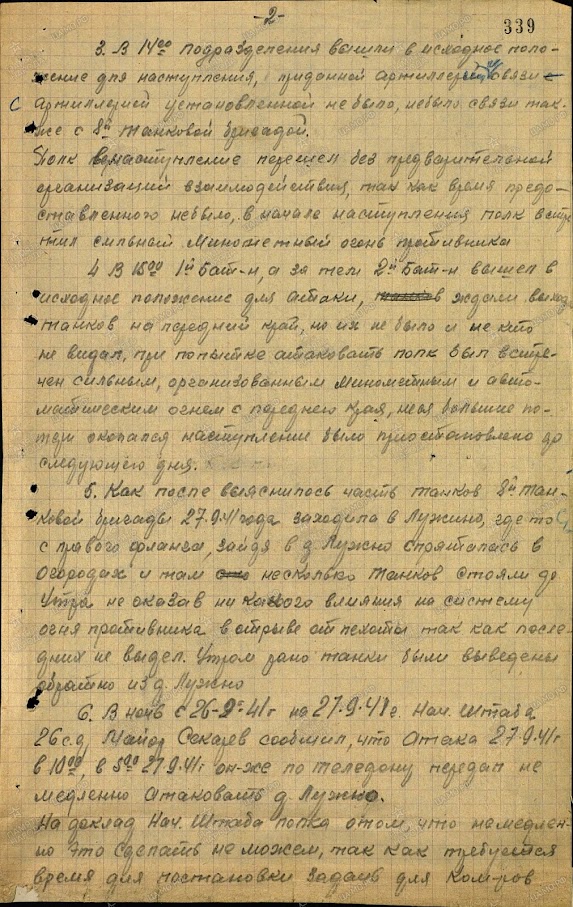 -2-
339
3. В 14⁰⁰ подразделения вышли в исходное поло-
жение для наступления, приданной артиллерии, связи с
артиллерией установленной не было, небыло связи так-
же с 8й танковой бригадой.
Полк в наступление перешел без предварительной
организаций взаимодействия, так как время предо-
ставленного небыло, в начале наступления полк встре
тил сильный минометный огонь противника
4 В 15⁰⁰ 1й Бат-н, а за тем 2й Бат-н вышел в
исходное положение для атаки, в ждали выход
танков на передний край, но их не было и не кто
не видал, при попытке атаковать полк был встре-
чен сильным, организованным минометным и авто-
матическим огнем с переднего края, неся большие по-
тери окопался наступление было приостановлено до
следующего дня.
5. Как после выяснилось часть танков 8й тан-
ковой бригады 27.9.41 года заходила в Лужно, где то
с правого фланга, зайдя в д Лужно спряталась в
огородах и там несколько танков стояли до
утра не оказав ни какого влияния на систему
огня противника в отрыве от пехоты так как после-
дних не видел. Утром рано танки были выведены
обратно из д. Лужно
6. В ночь с 26-9-41г на 27.9.41г. Нач. Штаба
26с.д. Майор сообщил, что атака 27.9.41г
в 10⁰⁰, в 5⁰⁰ 27.9.41г он-же по теледону передал не
медленно атаковать д. Лужно.
На доклад Нач. Штаба полка о том, что немедлен-
но это сделать не можем, так как требуется
время для постановки задачь для ком-ров